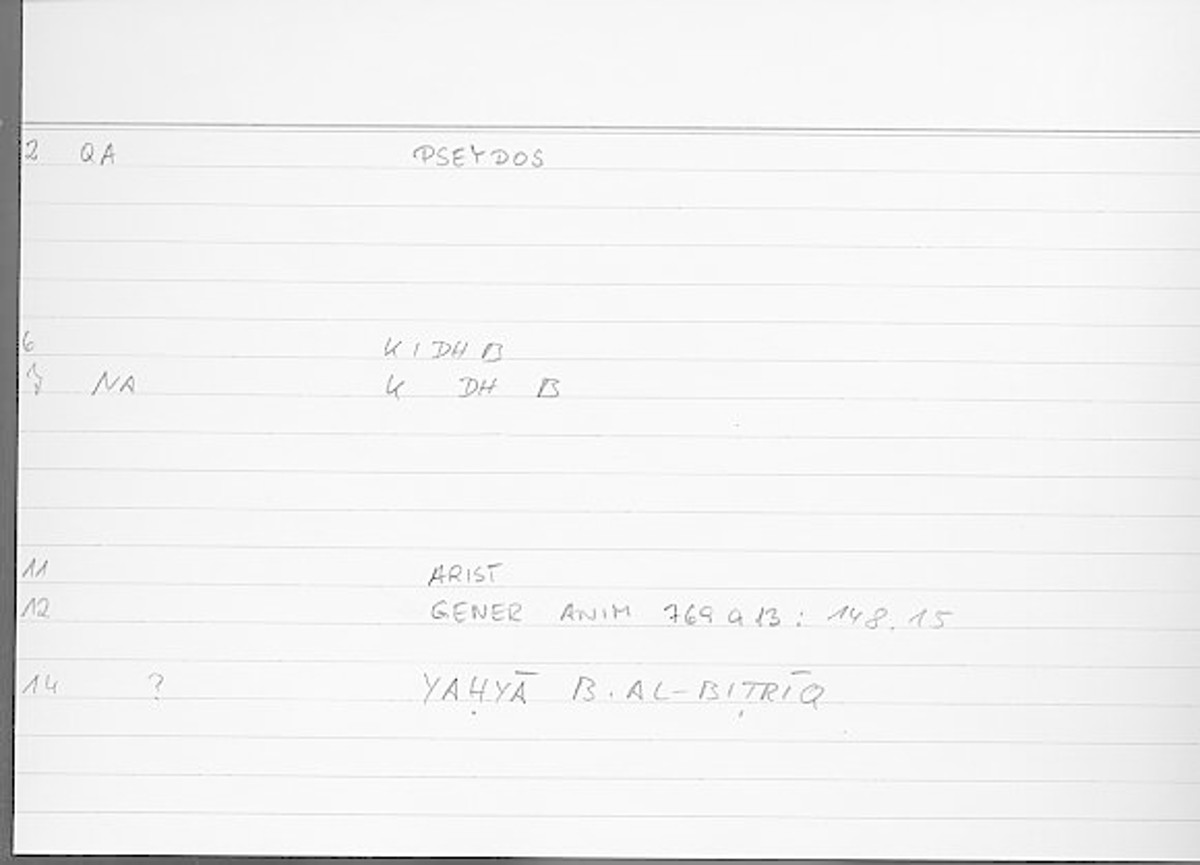 2 QA PSEYDOS
6 KIDHB
7 NA K DH B
11 ARIST
12 GENER ANIM 769 a 13 : 148.15
14 ? YAḤYĀ B. AL-BIṬRĪQ